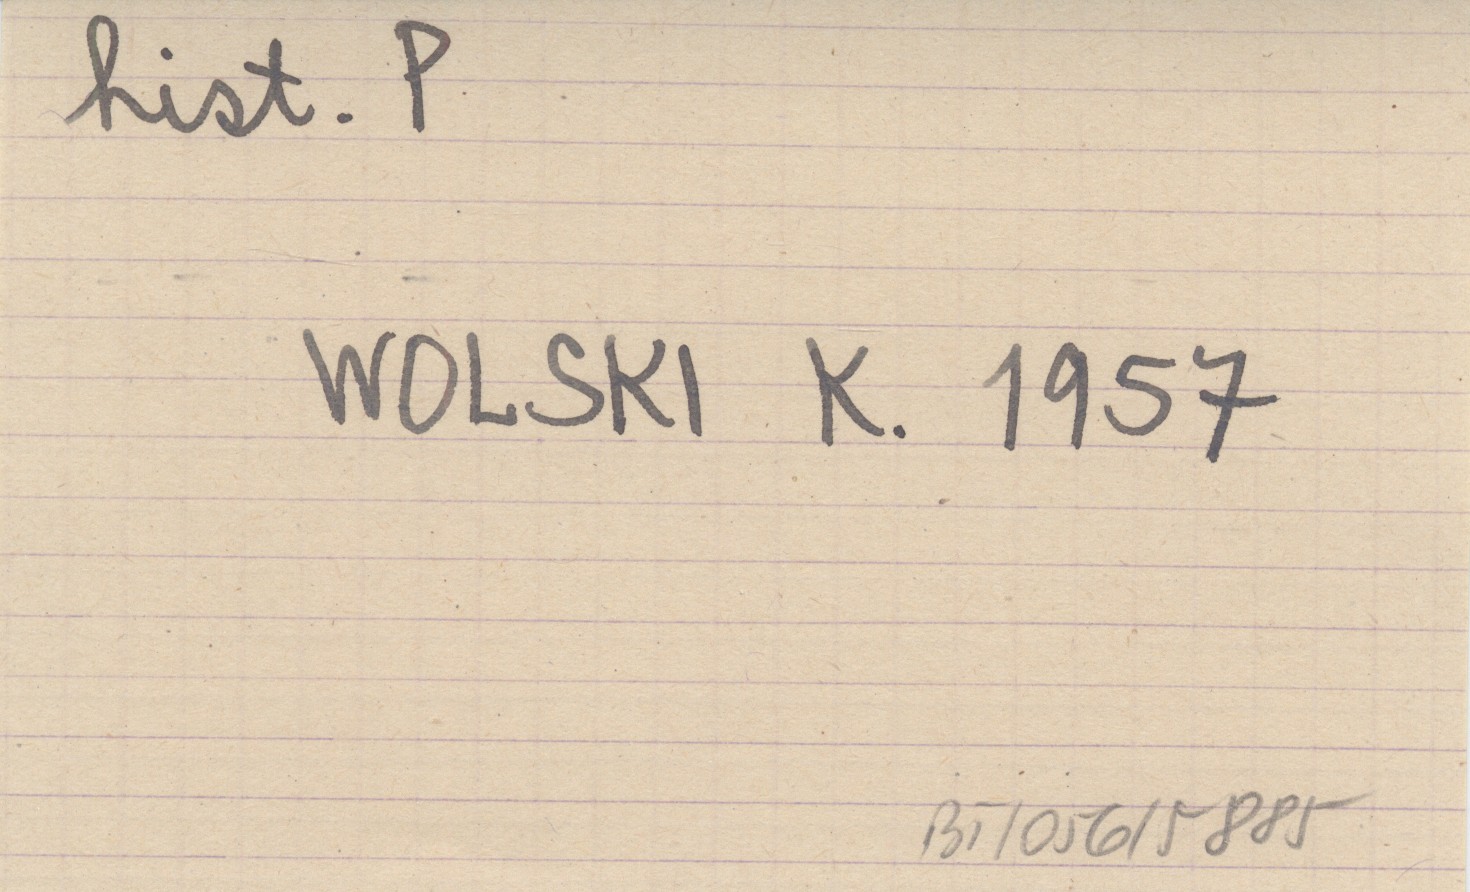 hist. P
WOLSKI K. 1957
BT/056/5885